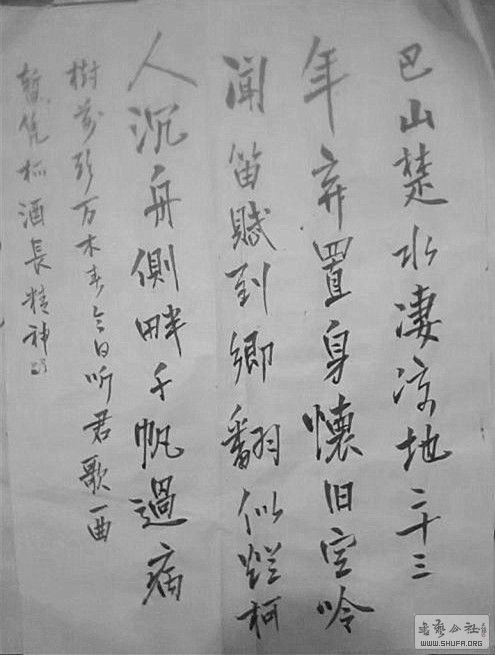 巴山楚水凄凉地二十三
年弃置身懷旧空吟
聞笛賦到鄉翻似烂柯
人沉舟側畔千帆過病
樹前头万木春今日听君歌一曲
暫凭杯酒長精神
WWW.SHUFA.ORG